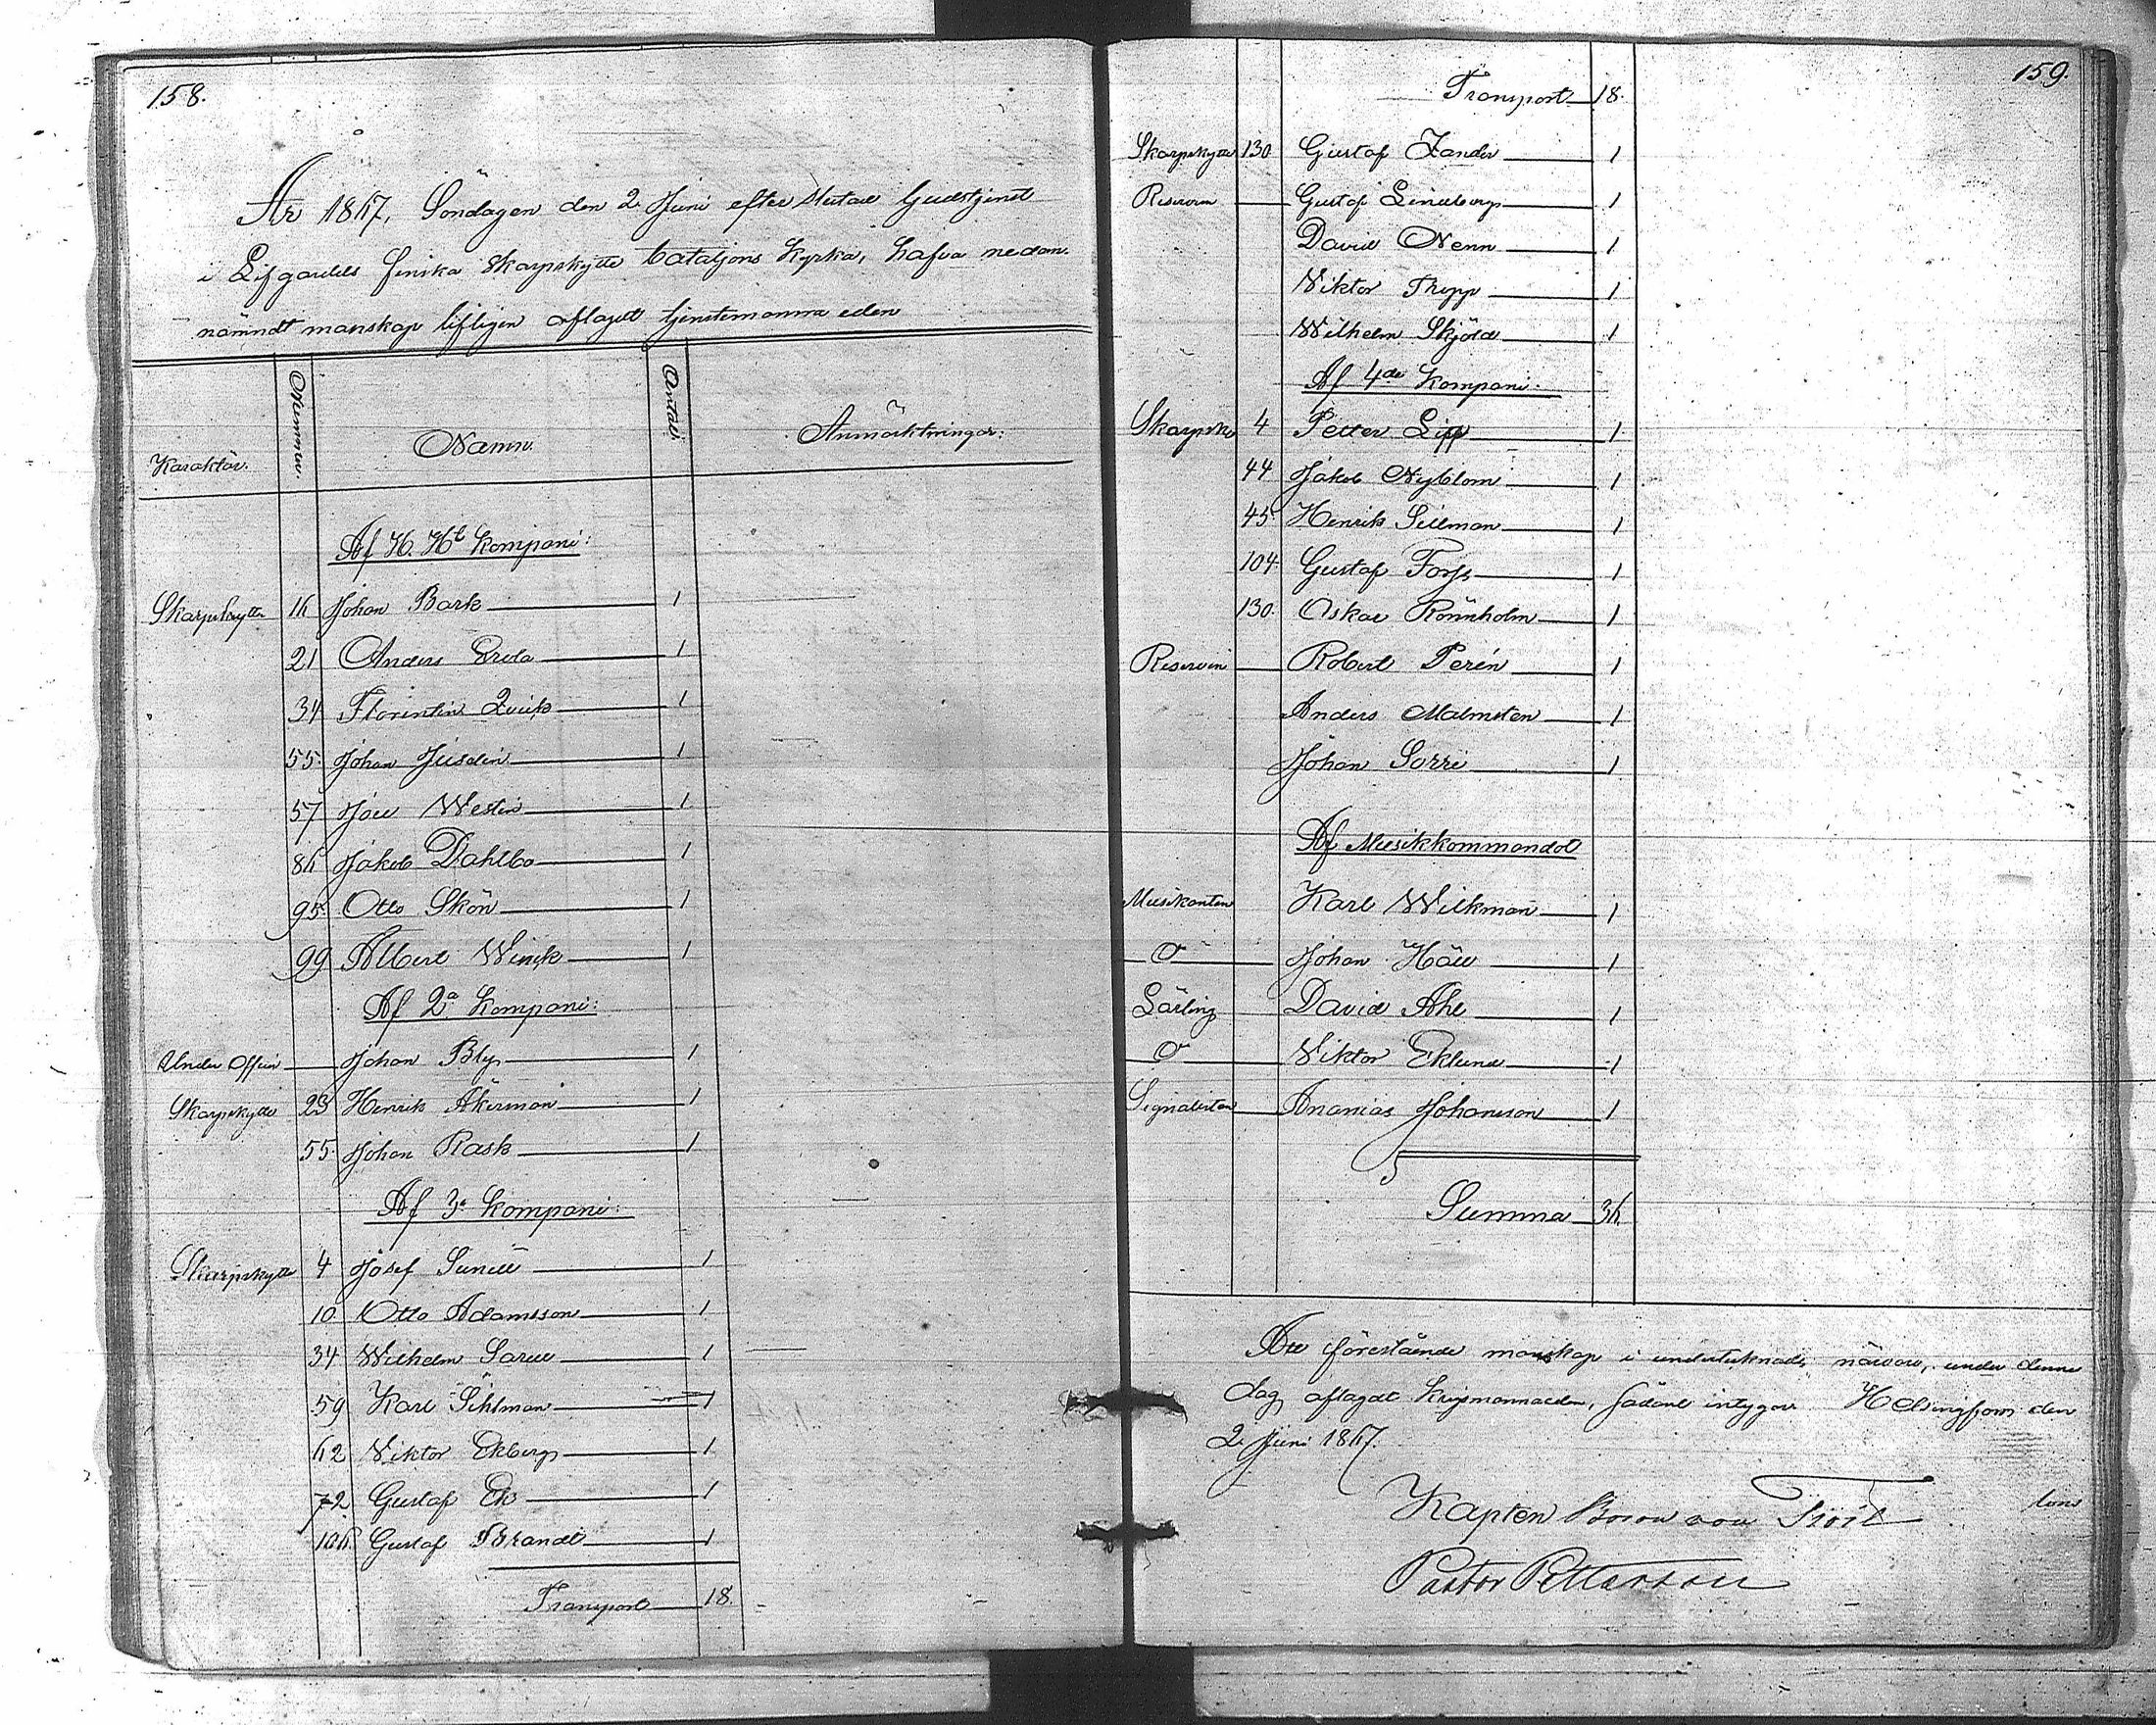 158.
År 1867, Söndagen den 2 Juni efter slutad Gudstjenst
i Lifgardets finska Skarpskytte bataljons Kyrka, hafva nedan-
nämndt manskap lifligen aflagdt tjenstemanna eden
Karaktär. Nummer. Namn. Antal. Anmärkningar:
Af H. Ht kompani:
Skarpskytte 16 Johan Bark 1
21 Anders 1
34 Florentin Qvick 1
55. Johan 1
57 Westin 1
86 Jakob Dahlbo 1
95. Otto Skön 1
99 Albert 1
Af 2a Kompani:
Under Officer Johan Bly 1
Skarpskytte 23 Henrik Åkerman 1
55. Johan Rask 1
Af 3e kompani:
Skarpskytte 4 Josef Sunell 1
10 Otto Adamsson 1
34 Wilhelm 1
59 Karl Sihlman 1
62 Viktor Ekberg 1
72 Gustaf Ek 1
106. Gustaf Brandt 1
Transport 18.
159.
Transport 18.
Skarpskytte 130 Gustaf Zander 1
Reserven Gustaf Lindberg 1
David Nenn 1
Viktor Thepp 1
Wilhelm Skjöld 1
Af 4de Kompani.
Skarpsk 4 Petter Lipp 1
44 Jakob Nyblom 1
45 Henrik Sillman 1
104. Gustaf Forss 1
130. Oskar Rönnholm 1
Reserven Robert Perén 1
Anders Malmsten 1
Johan Sorri 1
Af Musikkommandot
Musikanten Karl Wilkman 1
D:o Johan 1
Lärling David Ahl 1
D:o Viktor Eklund 1
Signalisten Ananias Johansson 1
Summa 36.
Att förestående manskap i undertecknads närvaro, under denna
dag aflagdt Krigsmannaeden, sådant intygar. Helsingfors den
2 Juni 1867.
Kapten Baron von Troil
Pastor Pettersson